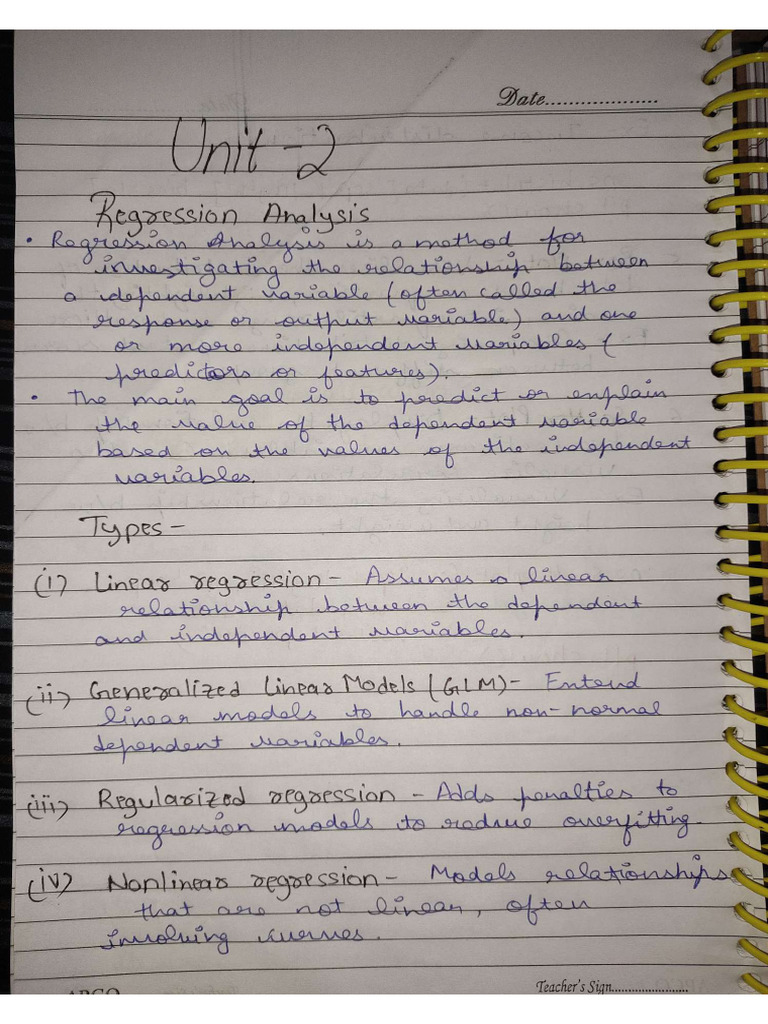 Date...................
Unit-2
Regression Analysis
• Regression Analysis is a method for
investigating the relationship between
a dependent variable (often called the
response or output variable) and one
or more independent variables (
predictors or features).
• The main goal is to predict or explain
the value of the dependent variable
based on the values of the independent
variables.
Types-
(i) Linear regression - Assumes a linear
relationship between the dependent
and independent variables.
(ii) Generalized Linear Models (GLM)- Extend
linear models to handle non-normal
dependent variables.
(iii) Regularized regression - Adds penalties to
regression models to reduce overfitting.
(iv) Nonlinear regression - Models relationships
that are not linear, often
involving curves.
Teacher's Sign.......................